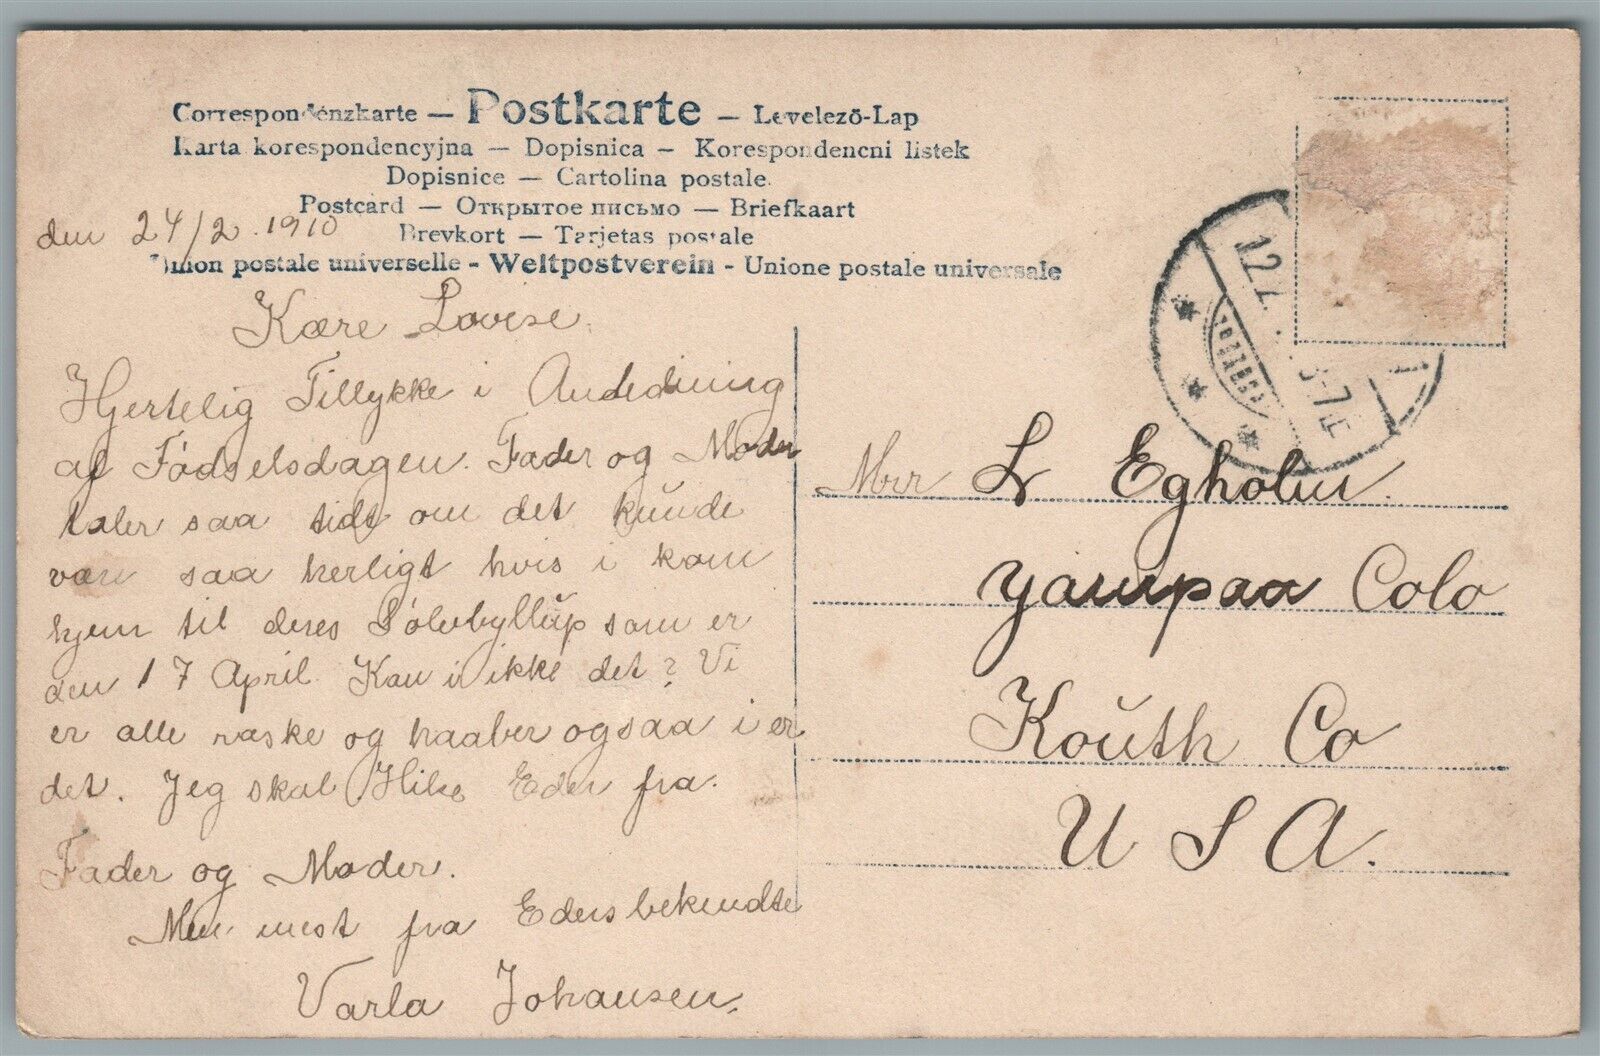 Correspondenzkarte — Postkarte — Levelező-Lap
Karta korespondencyjna — Dopisnica — Korespondencni listek
Dopisnice — Cartolina postale.
Postcard — Открытое письмо — Briefkaart
Brevkort — Tarjetas postale
Union postale universelle - Weltpostverein - Unione postale universale
den 24/2. 1910
Kære Lovise.
Hjertelig Tillykke i Andedning
af Fødselsdagen. Fader og Moder
taler saa tidt om det kunde
være saa herligt hvis i kom
hjem til deres Sølvbyllup som er
den 17 April. Kan i ikke det? Vi
er alle raske og haaber ogsaa i er
det. Jeg skal Hilse Eder fra.
Fader og Moder.
Men mest fra Eders bekendte
Varla Johansen.
Mrr L Egholm.
Yampaa Colo
Routh Co
U S A.
12.2
3-7E